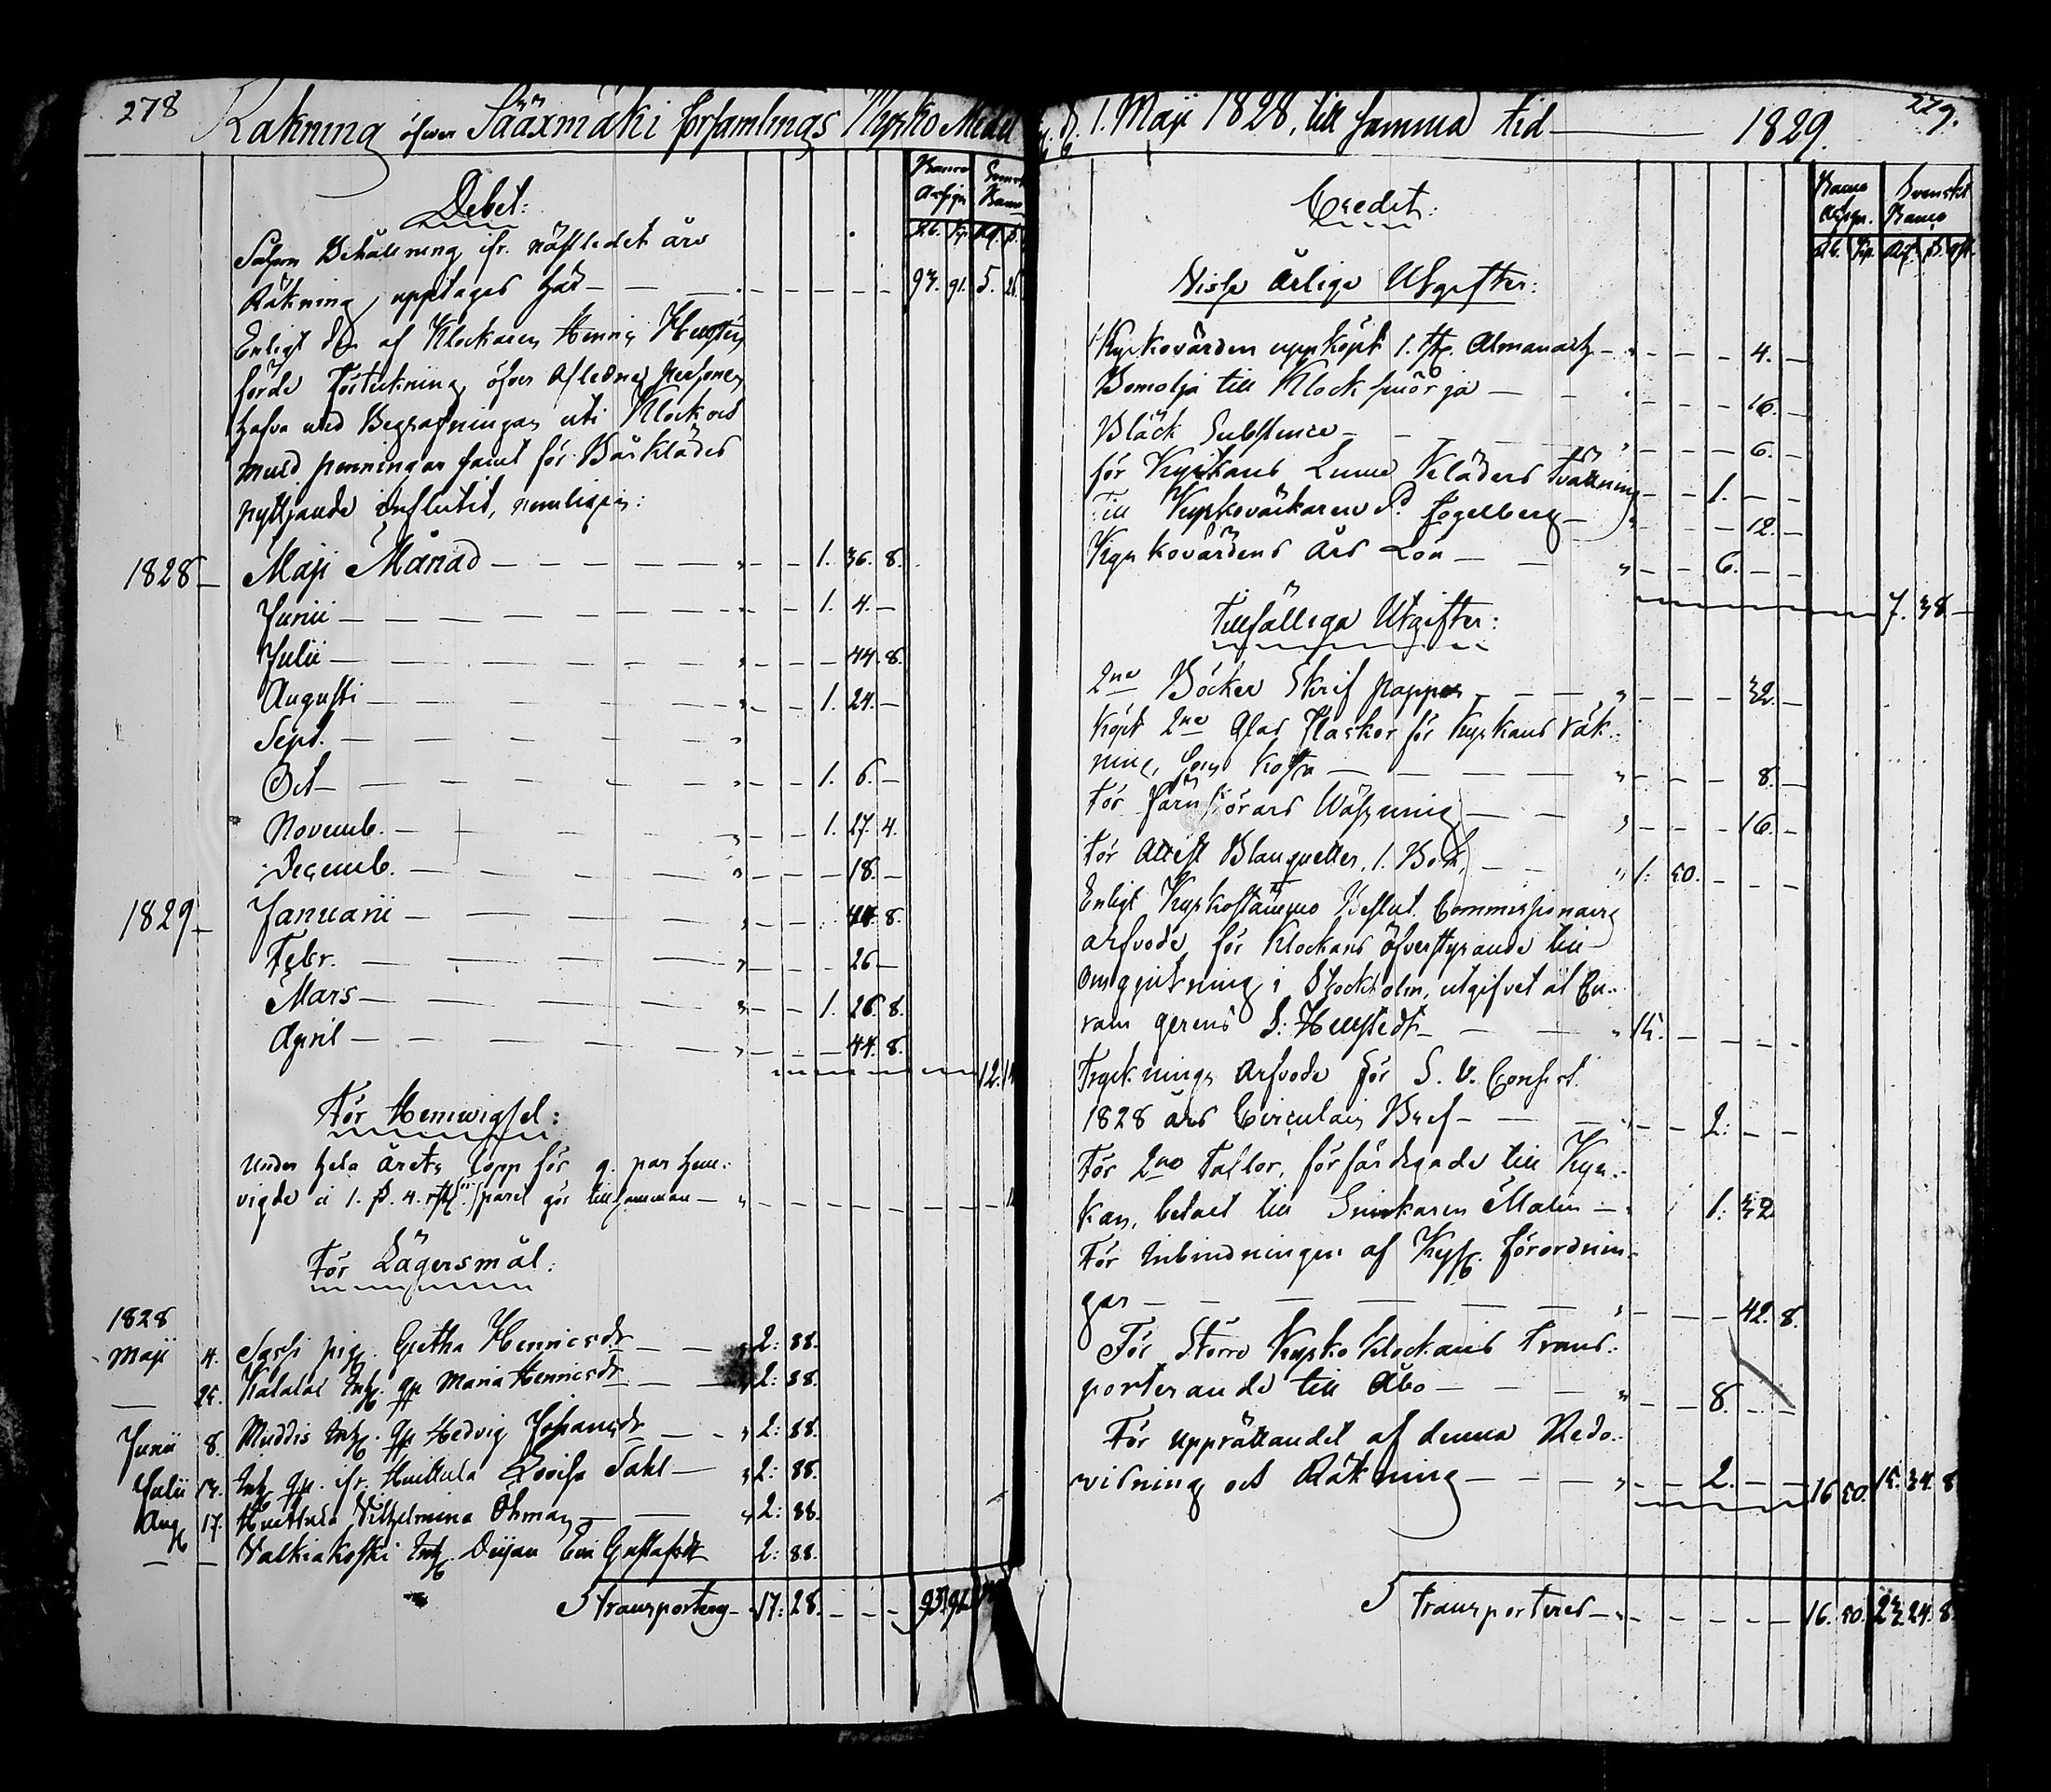 278
Räkning öfver Sääxmäki församlings Kyrko Medel
Banco Assign.
Svensk Banco
Debet:
Såsom Behållning ifr. näst ledet års
Räkning, upptages här — — — 93. 91. 5.
Enligt den af Klockaren Henric Hellsten
förde Förteckning öfver Afledne Personer
hafva med Begrafningar uti Klockor
muld penningar samt för Bårklädes
nyttjande influtit, nemligen:
1828 — Maji Månad — — — 1. 36. 8.
Junii — — — 1. 4. —
Julii — — — 44. 8.
Augusti — — — 1. 24. —
Sept. — — —
Oct — — — 1. 6. —
Novemb. — — — 1. 27. 4.
Decemb. — — — 18. —
1829 — Januarii — — — 44. 8.
Febr. — — — 26 —
Mars — — — 1. 26. 8.
April — — — 44. 8.
12.
För Hemwigsel:
Under hela årets lopp för 9. par hem-
vigde à 1. ß. 4. rst. paret gör tillsamman —
För Lägersmål:
1828
Maji 4. Saghi pig. Gretha Henricsdr — — 2: 88.
— 25. Kakalas Inh. qp Maria Henricsdr — 2: 88.
Junii 8. Muddis Inh. qp Hedvig Johansdr — — 2: 88.
Julii 13. Inh. qp. ifr. Huittula Lovisa Sahl — 2: 88.
Aug 17. Huittula Vilhelmina Öhman — — 2: 88.
— — Valkiakoski Inh. Eva Gustafsdr 2: 88.
Transporteras — 17: 28. — — — 93. 91.
279.
d. 1. Maji 1828, till samma tid — 1829.
Banco Assign.
Svenskt Banco
Credit:
Visse Årlige Utgifter:
Kyrkovärden uppköpt 1. st. Almanach — — — 4. —
Bomolja till Klock smörja — — — 16. —
Bläck Substance — — — 6. —
för Kyrkans Linne Kläders Tvättning — — 1. — —
Till Kyrkoväktaren P. Fogelberg — — — 12. —
Kyrkovärdens Års Lön — — — 6. — —
7. 38 —
Tillfälliga Utgifter:
2ne Böcker Skrif papper — — — 32. —
Köpt 2ne Glas Flaskor för Kyrkans räk-
ning, som kosta — — — 8. —
För Jäm — — — 16. —
För Attest Blanquetter, 1. Bok, — — 1: 50. — — —
Enligt Kyrkostämmo Beslut Commissionairs
arfvode för Klockans öfverstyrande till
omgjutning i Stockholm, utgifvet åt Cu-
ram gerens S: Hellstedt — — — 15. — — — —
Trycknings Arfvode för S. V. Consist.
1828 års Circulair Bref — — — 2: — —
För 2ne Taflor, förfärdigade till Kyr-
kan, betalt till Snickaren Malin — 1: 32
För Inbindningen af Kejs. Förordnin-
gar — — — 42. 8.
För Större Kyrko Klockans trans-
porterande till Åbo — — — 8. — —
För upprättandet af denna Redo-
visning och Räkning — — — 2. — — 16 50. 15. 34. 8
Transporteras — — — 16. 50. 23. 24. 8